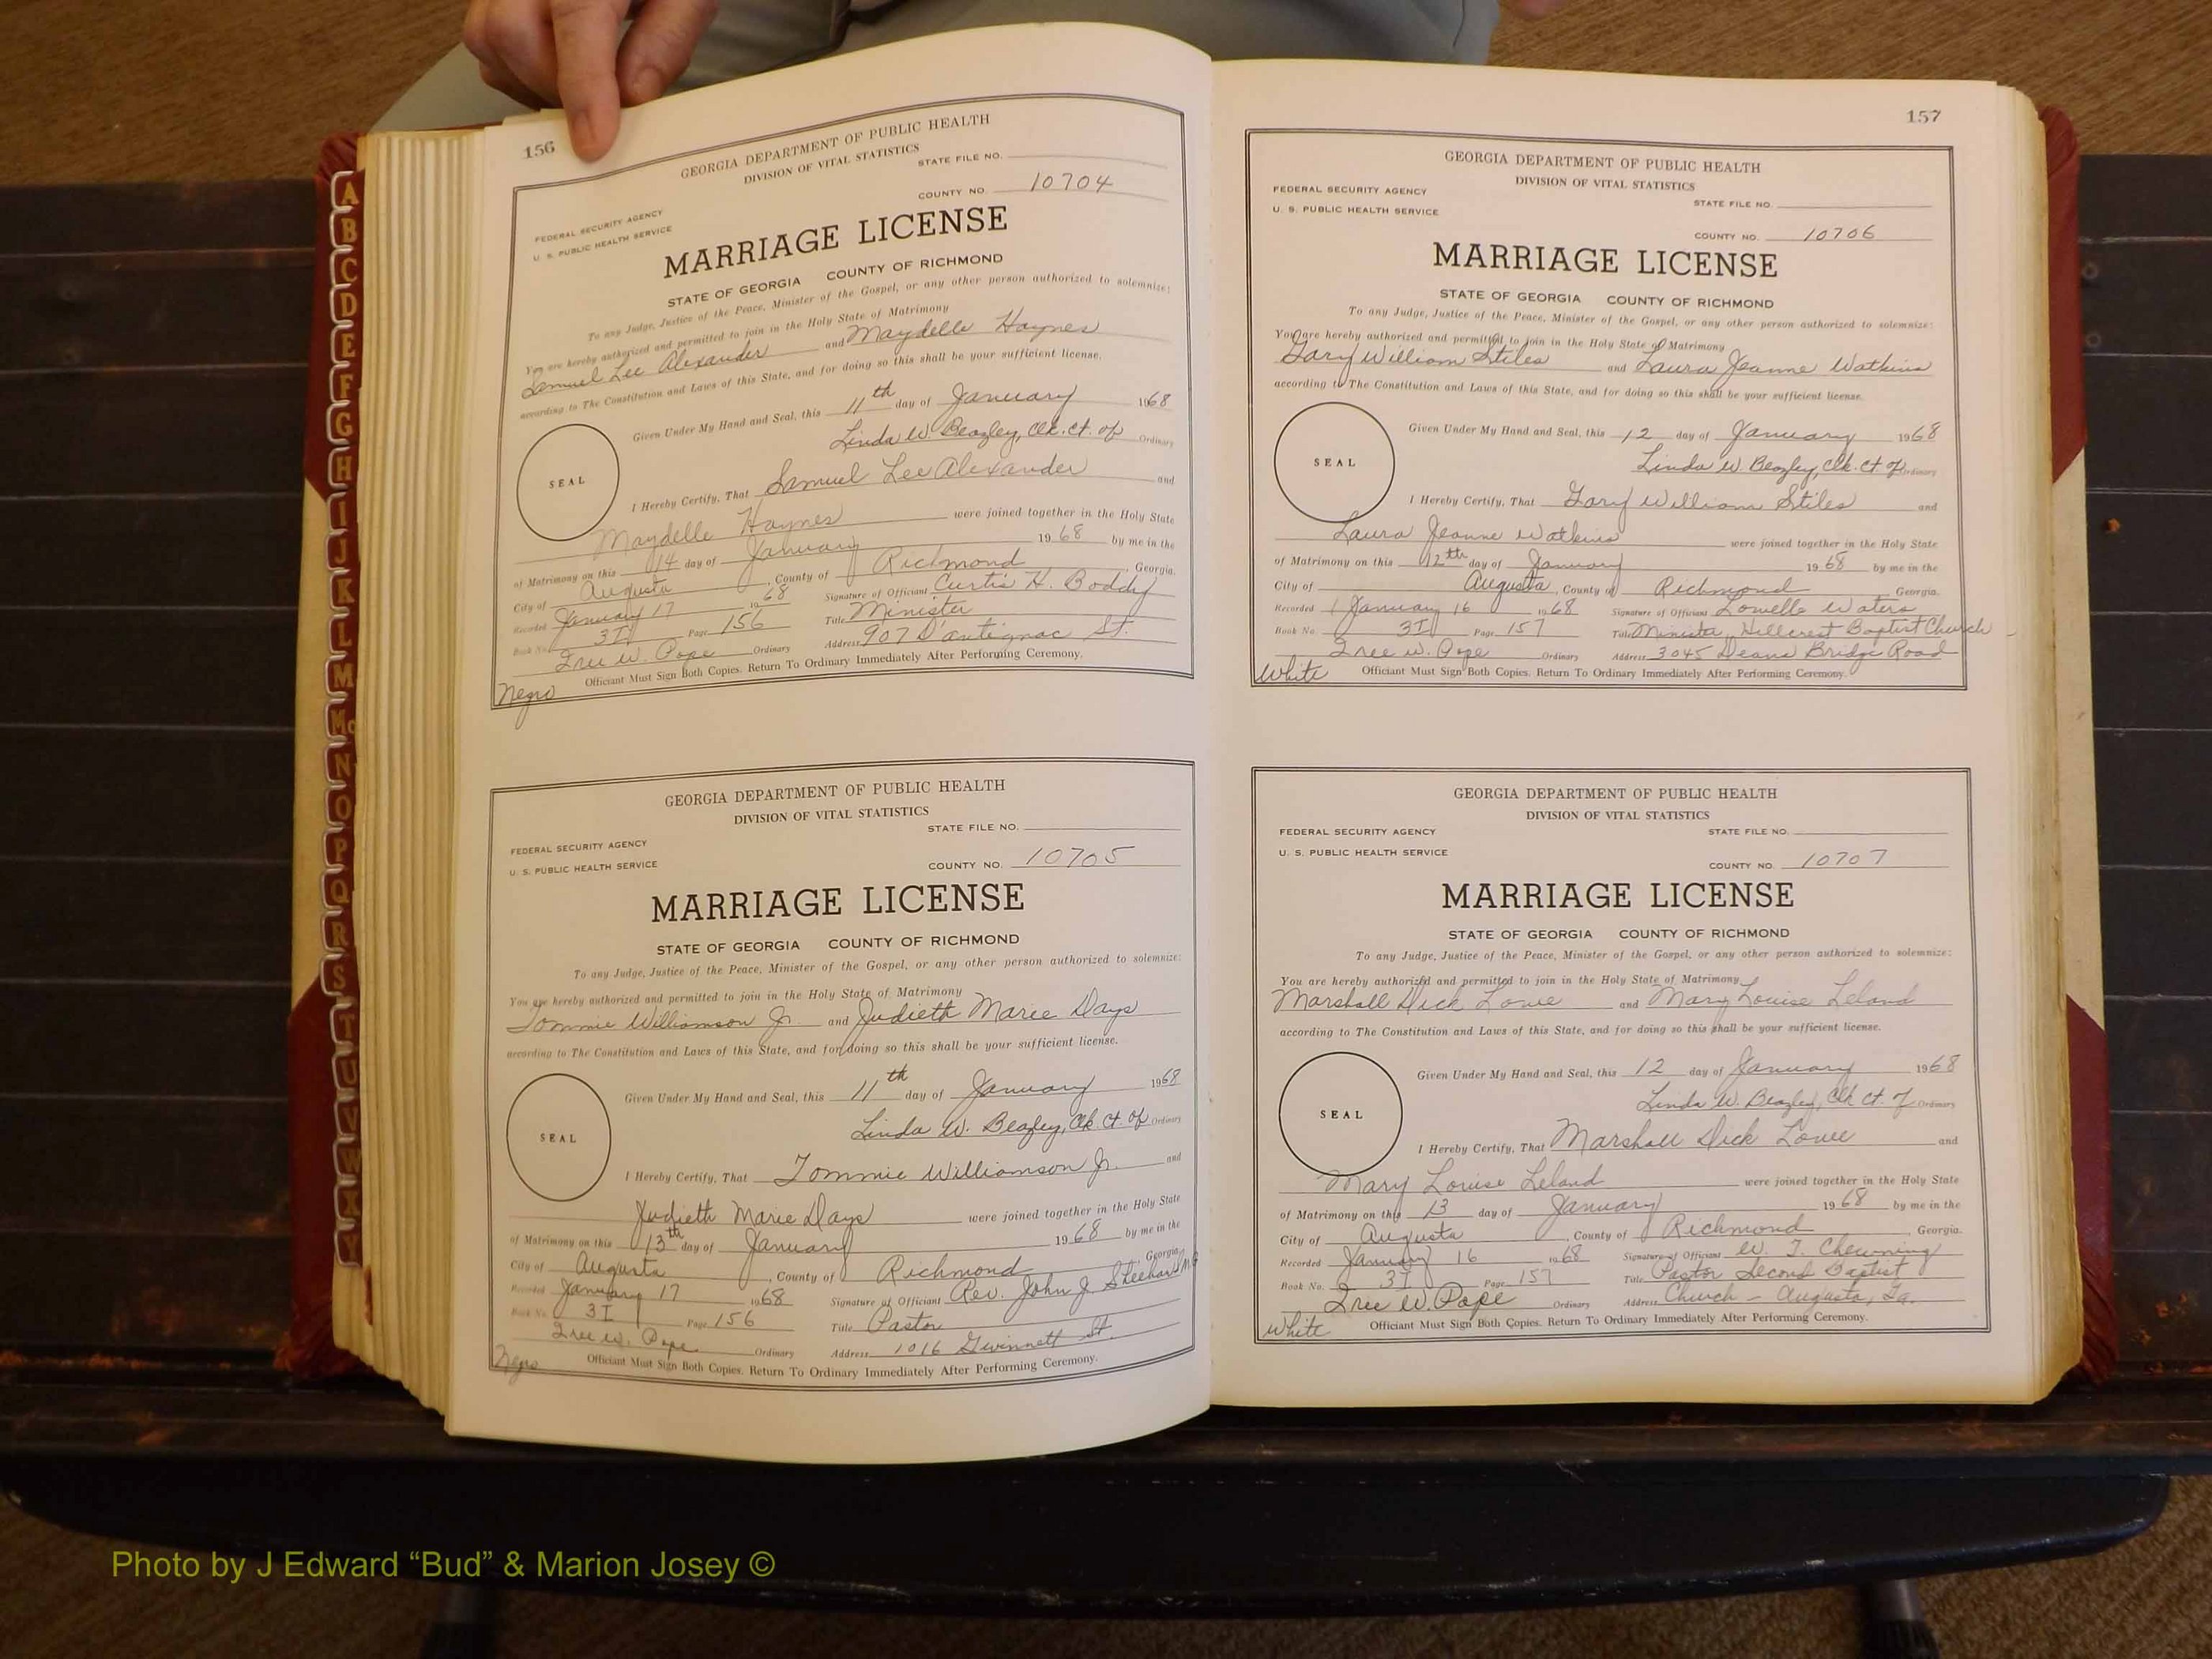 156
GEORGIA DEPARTMENT OF PUBLIC HEALTH
DIVISION OF VITAL STATISTICS
STATE FILE NO.
COUNTY NO. 10704
FEDERAL SECURITY AGENCY
U. S. PUBLIC HEALTH SERVICE
MARRIAGE LICENSE
STATE OF GEORGIA COUNTY OF RICHMOND
To any Judge, Justice of the Peace, Minister of the Gospel, or any other person authorized to solemnize:
You are hereby authorized and permitted to join in the Holy State of Matrimony
Samuel Lee Alexander and Maydelle Haynes
according to The Constitution and Laws of this State, and for doing so this shall be your sufficient license.
Given Under My Hand and Seal, this 11th day of January 1968
Linda W. Beazley, Clk. Ct. of Ordinary
SEAL
I Hereby Certify, That Samuel Lee Alexander and
Maydelle Haynes were joined together in the Holy State
of Matrimony on this 14 day of January 1968 by me in the
City of Augusta, County of Richmond, Georgia.
Recorded January 17 1968 Signature of Officiant Curtis H. Boddy
Book No. 3I Page 156 Title Minister
Ordinary Address 907 D'antignac St.
Officiant Must Sign Both Copies. Return To Ordinary Immediately After Performing Ceremony.
Negro
GEORGIA DEPARTMENT OF PUBLIC HEALTH
DIVISION OF VITAL STATISTICS
STATE FILE NO.
FEDERAL SECURITY AGENCY
U. S. PUBLIC HEALTH SERVICE
COUNTY NO. 10705
MARRIAGE LICENSE
STATE OF GEORGIA COUNTY OF RICHMOND
To any Judge, Justice of the Peace, Minister of the Gospel, or any other person authorized to solemnize:
You are hereby authorized and permitted to join in the Holy State of Matrimony
Tommie Williamson Jr. and Judieth Marie Days
according to The Constitution and Laws of this State, and for doing so this shall be your sufficient license.
Given Under My Hand and Seal, this 11th day of January 1968
Linda W. Beazley, Clk. Ct. of Ordinary
SEAL
I Hereby Certify, That Tommie Williamson Jr. and
Judieth Marie Days were joined together in the Holy State
of Matrimony on this 13th day of January 1968 by me in the
City of Augusta, County of Richmond, Georgia.
Recorded January 17 1968 Signature of Officiant Rev. John J. Sheehan
Book No. 3I Page 156 Title Pastor
Ordinary Address 1016 Gwinnett St.
Officiant Must Sign Both Copies. Return To Ordinary Immediately After Performing Ceremony.
Negro
157
GEORGIA DEPARTMENT OF PUBLIC HEALTH
DIVISION OF VITAL STATISTICS
FEDERAL SECURITY AGENCY
U. S. PUBLIC HEALTH SERVICE
STATE FILE NO.
COUNTY NO. 10706
MARRIAGE LICENSE
STATE OF GEORGIA COUNTY OF RICHMOND
To any Judge, Justice of the Peace, Minister of the Gospel, or any other person authorized to solemnize:
You are hereby authorized and permitted to join in the Holy State of Matrimony
Gary William Stiles and Laura Jeanne Watkins
according to The Constitution and Laws of this State, and for doing so this shall be your sufficient license.
Given Under My Hand and Seal, this 12 day of January 1968
Linda W. Beazley, Clk. Ct. of Ordinary
SEAL
I Hereby Certify, That Gary William Stiles and
Laura Jeanne Watkins were joined together in the Holy State
of Matrimony on this 12th day of January 1968 by me in the
City of Augusta, County of Richmond Georgia.
Recorded January 16 1968 Signature of Officiant Lowelle Waters
Book No. 3I Page 157 Title Minister, Hillcrest Baptist Church
Ordinary Address 3045 Deans Bridge Road
White
Officiant Must Sign Both Copies. Return To Ordinary Immediately After Performing Ceremony.
GEORGIA DEPARTMENT OF PUBLIC HEALTH
DIVISION OF VITAL STATISTICS
FEDERAL SECURITY AGENCY
U. S. PUBLIC HEALTH SERVICE
STATE FILE NO.
COUNTY NO. 10707
MARRIAGE LICENSE
STATE OF GEORGIA COUNTY OF RICHMOND
To any Judge, Justice of the Peace, Minister of the Gospel, or any other person authorized to solemnize:
You are hereby authorized and permitted to join in the Holy State of Matrimony
Marshall Dick and Mary Louise Leland
according to The Constitution and Laws of this State, and for doing so this shall be your sufficient license.
Given Under My Hand and Seal, this 12 day of January 1968
Linda W. Beazley, Clk Ct. of Ordinary
SEAL
I Hereby Certify, That Marshall Dick and
Mary Louise Leland were joined together in the Holy State
of Matrimony on this 13 day of January 1968 by me in the
City of Augusta, County of Richmond, Georgia.
Recorded January 16 1968 Signature of Officiant W. T. Chewning
Book No. 3I Page 157 Title Pastor Second Baptist
Ordinary Address Church - Augusta, Ga.
White
Officiant Must Sign Both Copies. Return To Ordinary Immediately After Performing Ceremony.
A
B
C
D
E
F
G
H
I
J
K
L
M
Mc
N
O
P
Q
R
S
T
U
V
W
X
Y
Photo by J Edward “Bud” & Marion Josey ©